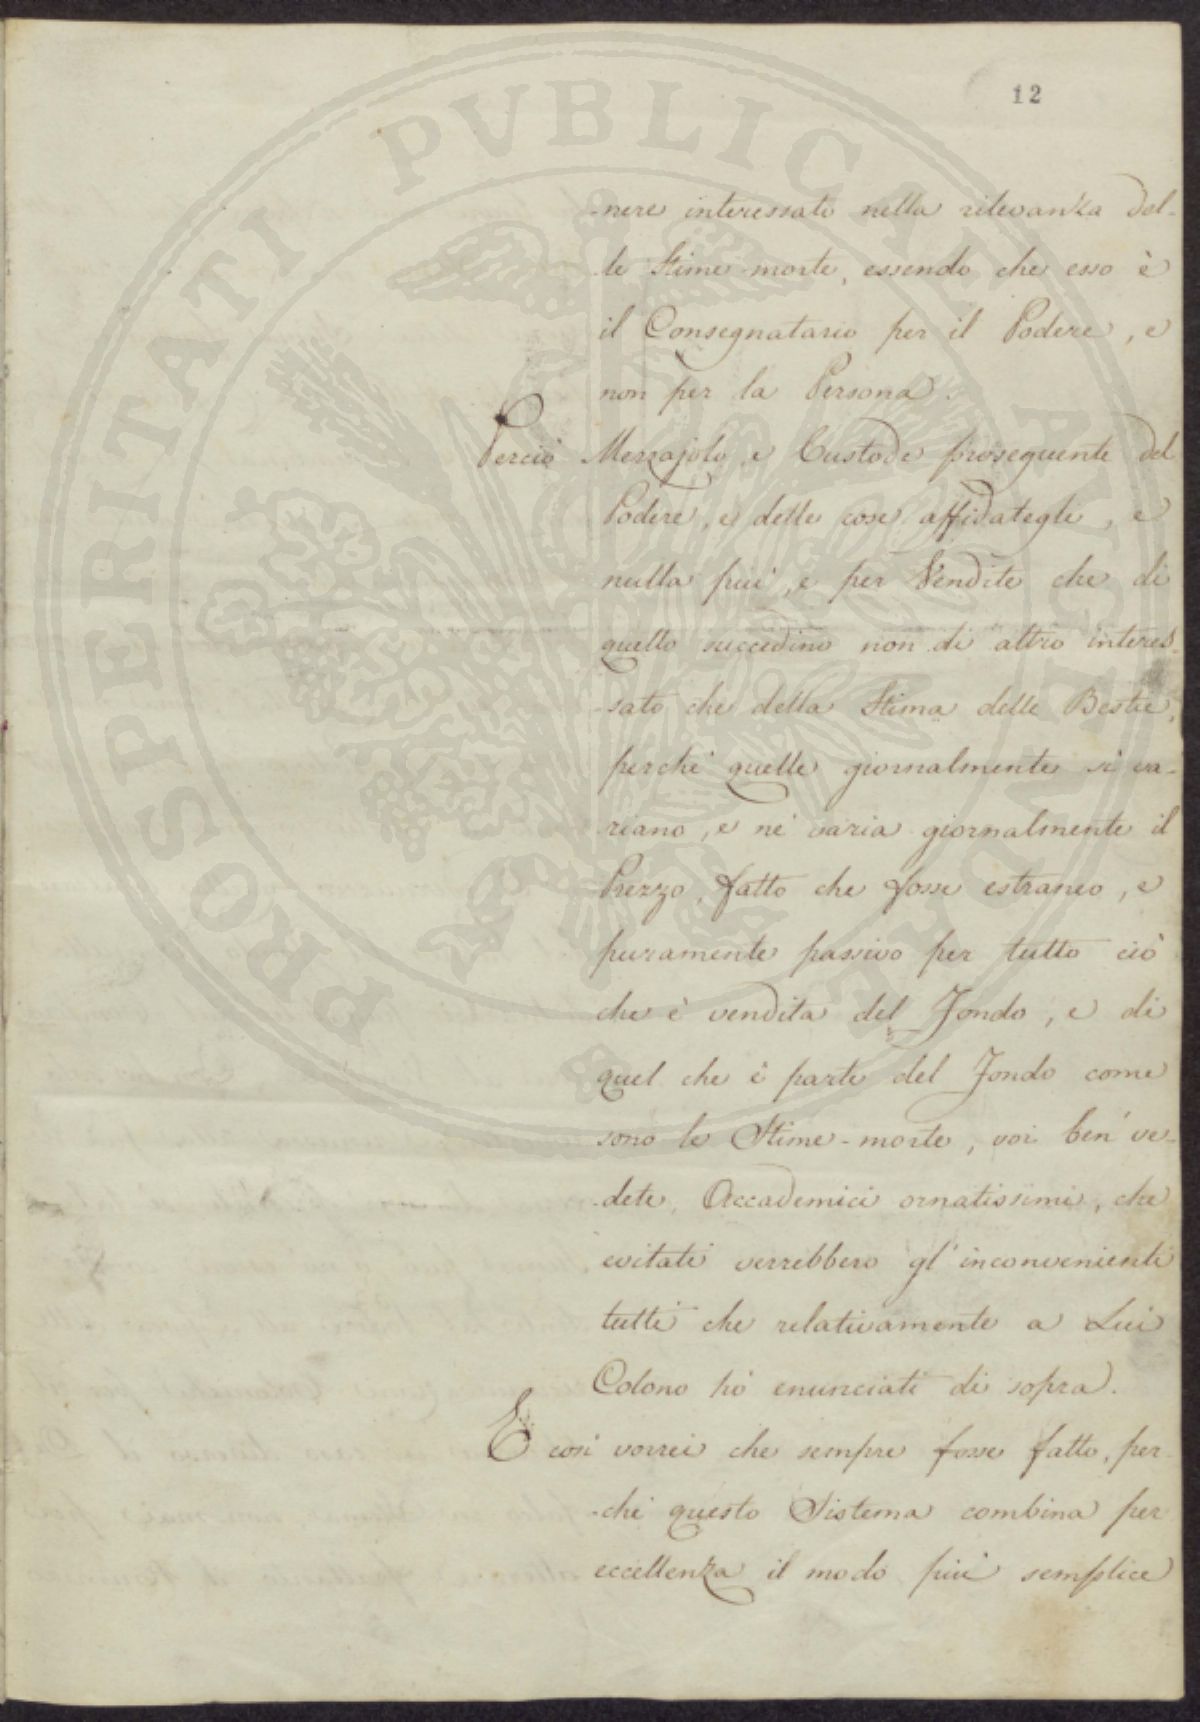 12
-nere interessato nella rilevanza del-
le Stime morte, essendo che esso è
il Consegnatario per il Podere, e
non per la Persona.
Perciò Mezzajolo, e Custode proseguente del
Podere, e delle cose affidategli, e
nulla più, e per Vendite che di
quello succedino non di altro interes-
-sato che della Stima delle Bestie,
perchè quelle giornalmente si va-
riano, e nè varia giornalmente il
Prezzo, fatto che fosse estraneo, e
puramente passivo per tutto ciò
che è vendita del Fondo, e di
quel che è parte del Fondo come
sono le Stime-morte, voi ben' ve-
-dete, Accademici ornatissimi, che
evitati verrebbero gl' inconvenienti
tutti che relativamente a Lui
Colono hò enunciati di sopra.
E così vorrei che sempre fosse fatto, per-
-chè questo Sistema combina per
eccellenza il modo più semplice
PROSPERITATI PVBLICAE AVGENDAE